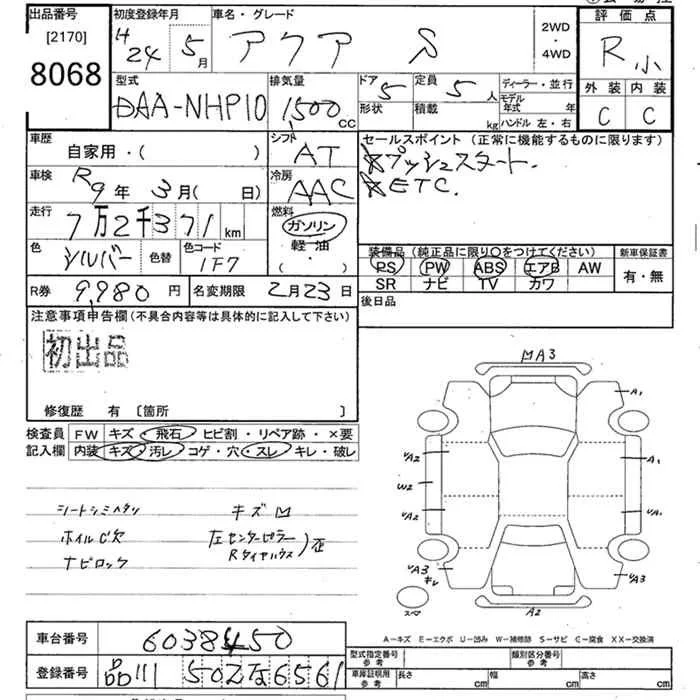 出品番号 初度登録年月 車名・グレード 2WD・4WD 評価点
[2170] 8068 H24 5月 アクア S R小
型式 排気量 ドア 5 定員 5人 ディーラー・並行 外装 内装
DAA-NHP10 1,500cc 形状 積載 kg モデル年式 年 C C
ハンドル 左・右
車歴 シフト セールスポイント (正常に機能するものに限ります)
自家用・( ) AT ☆プッシュスタート.
車検 R9年 3月( 日) 冷房 AAC ☆ETC.
走行 7万2千371km 燃料 ガソリン
軽油
( ・ )
色 シルバー 色替 色コード 1F7
装備品 (純正品に限り○をつけてください) 新車保証書
PS PW ABS エアB AW 有・無
SR ナビ TV カワ
R券 9,980円 名変期限 2月23日 後日品
注意事項申告欄 (不具合内容等は具体的に記入して下さい)
初出品
修復歴 有 〔箇所 〕
検査員 FW キズ・飛石・ヒビ割・リペア跡・×要
記入欄 内装 キズ・汚レ・コゲ・穴・スレ・キレ・破レ
シートシミヘタリ キズ凹
ホイルC欠 左センターピラー
ナビロック Rタイヤハウス )歪
MA3
A1
VA2 A1
W2
VA2 VA1
VA3 キレ VA3
スペ A2
A-キズ E-エクボ U-凹み W-補修跡 S-サビ C-腐食 XX-交換済
車台番号 6038450
型式指定番号 参考 類別区分番号 参考
登録番号 品川 502な6561
車庫証明用 参考 長さ cm 幅 cm 高さ cm